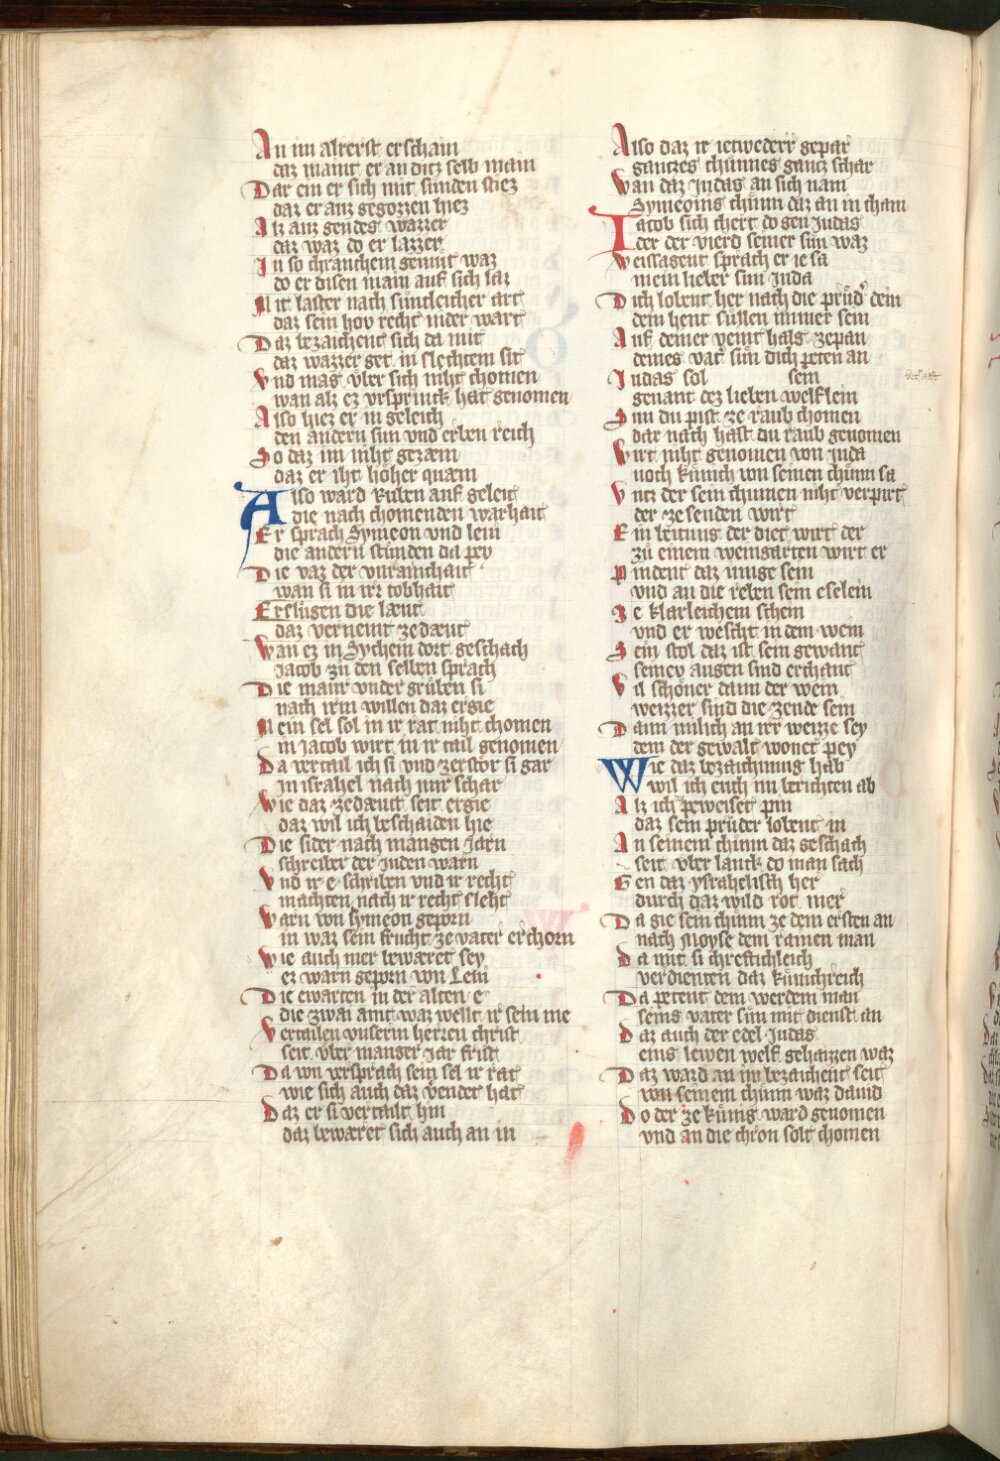 An im alrerst erschain
daz maint er an ditz selb main
Dar ein er sich mit sünden stiez
daz er auz gegozzen hiez
Alz auz gendes wazzer
daz waz do er lazzer
In so chranchem gemüt waz
do er disen main auf sich laz
Mit laster nach süntleicher art
daz sein hov recht in der wart
Daz bezaichent sich da mit
daz wazzer get in slechtem sit
Vnd mag vber sich niht chomen
wan alz ez vrsprinck hat genomen
Also hiez er in geleich
den andern sun vnd erben reich
So daz im niht gezæm
daz er iht höher quæm
Also ward Ruben auf geleit
die nach chomenden warhait
Er sprach Symeon vnd leui
die andern stunden da pey
Die vaz der vnrainchait
wan si in irr tobhait
Erslügen die læut
daz vernemt ze dæut
Wan ez in Sychem dort geschach
Jacob zü den selben sprach
Die maur vnder grüben si
nach irm willen daz ergie
Mein sel sol in ir rat niht chomen
in Jacob wirt in ir tail genomen
Da vertail ich si vnd zerstör si gar
in israhel nach mir schar
Wie daz ze dæutt seit ergie
daz wil ich beschaiden hie
Die sider nach mangen Jarn
schreiber der Juden warn
Vnd ir e schriben vnd ir recht
machten nach ir recht sleht
Warn von Symeon geporn
in waz sein frucht ze vater erchorn
Wie auch mer bewæret sey
ez warn geporn von Leui
Die ewarten in der alten e
die zwai amt waz wellt ir sein me
Vertailen vnserm herren christ
seit vber manger iar frist
Da von versprach sein sel ir rat
wie sich auch daz vendet hat
Daz er si vertailt hin
daz bewæret sich auch an in
Also daz ir ietwederr gepar
gantzes chünnes gantz schar
Wan daz Judas an sich nam
Symeoins chünn daz an in cham
Iacob sich chert do gen Judas
der der vierd seiner sün waz
Weissagent sprach er ie sa
mein lieber sun Juda
Dich lobent her nach die prüder dein
dein hent süllen immer sein
Auf deiner veint hals ze pan
deines vater sün dich peten an
Judas sol sein
genant dez lieben welflein
Sun du pist ze raub chomen
dar nach hast du raub genomen
Wirt niht genomen von Juda
noch künich von seinen chünn sa
Vntz der sein chumen niht verpirt
der ze senden wirt
Ein leitung der diet wirt der
zü einem weingarten wirt er
Pindent daz iunge sein
vnd an die reben sein eselein
Ze klarleichem schein
vnd er wescht in dem wein
Sein stol daz ist sein gewant
seiney augen sind erchant
Vil schöner dann der wein
weizzer sind die zende sein
Dann milich an irr weizze sey
dem der gewalt wonet pey
Wie daz bezaichnung hab
wil ich euch nu berichten ab
Alz ich peweiset pin
daz sein prüder lobent in
An seinem chünn daz geschach
seit vber lanck do man sach
Gen daz ysrahelisch her
durch daz wild rot mer
Da gie sein chünn ze dem ersten an
nach Moyse dem rainen man
Da mit si chreftichleich
verdienten daz künichreich
Da petent dem werdem man
seins vater sün mit dienst an
Daz auch der edel Judas
eins lewen welf gehaizzen waz
Daz ward an im bezaichent seit
von seinem chünn waz dauid
Do der ze künig ward genomen
vnd an die chron solt chomen